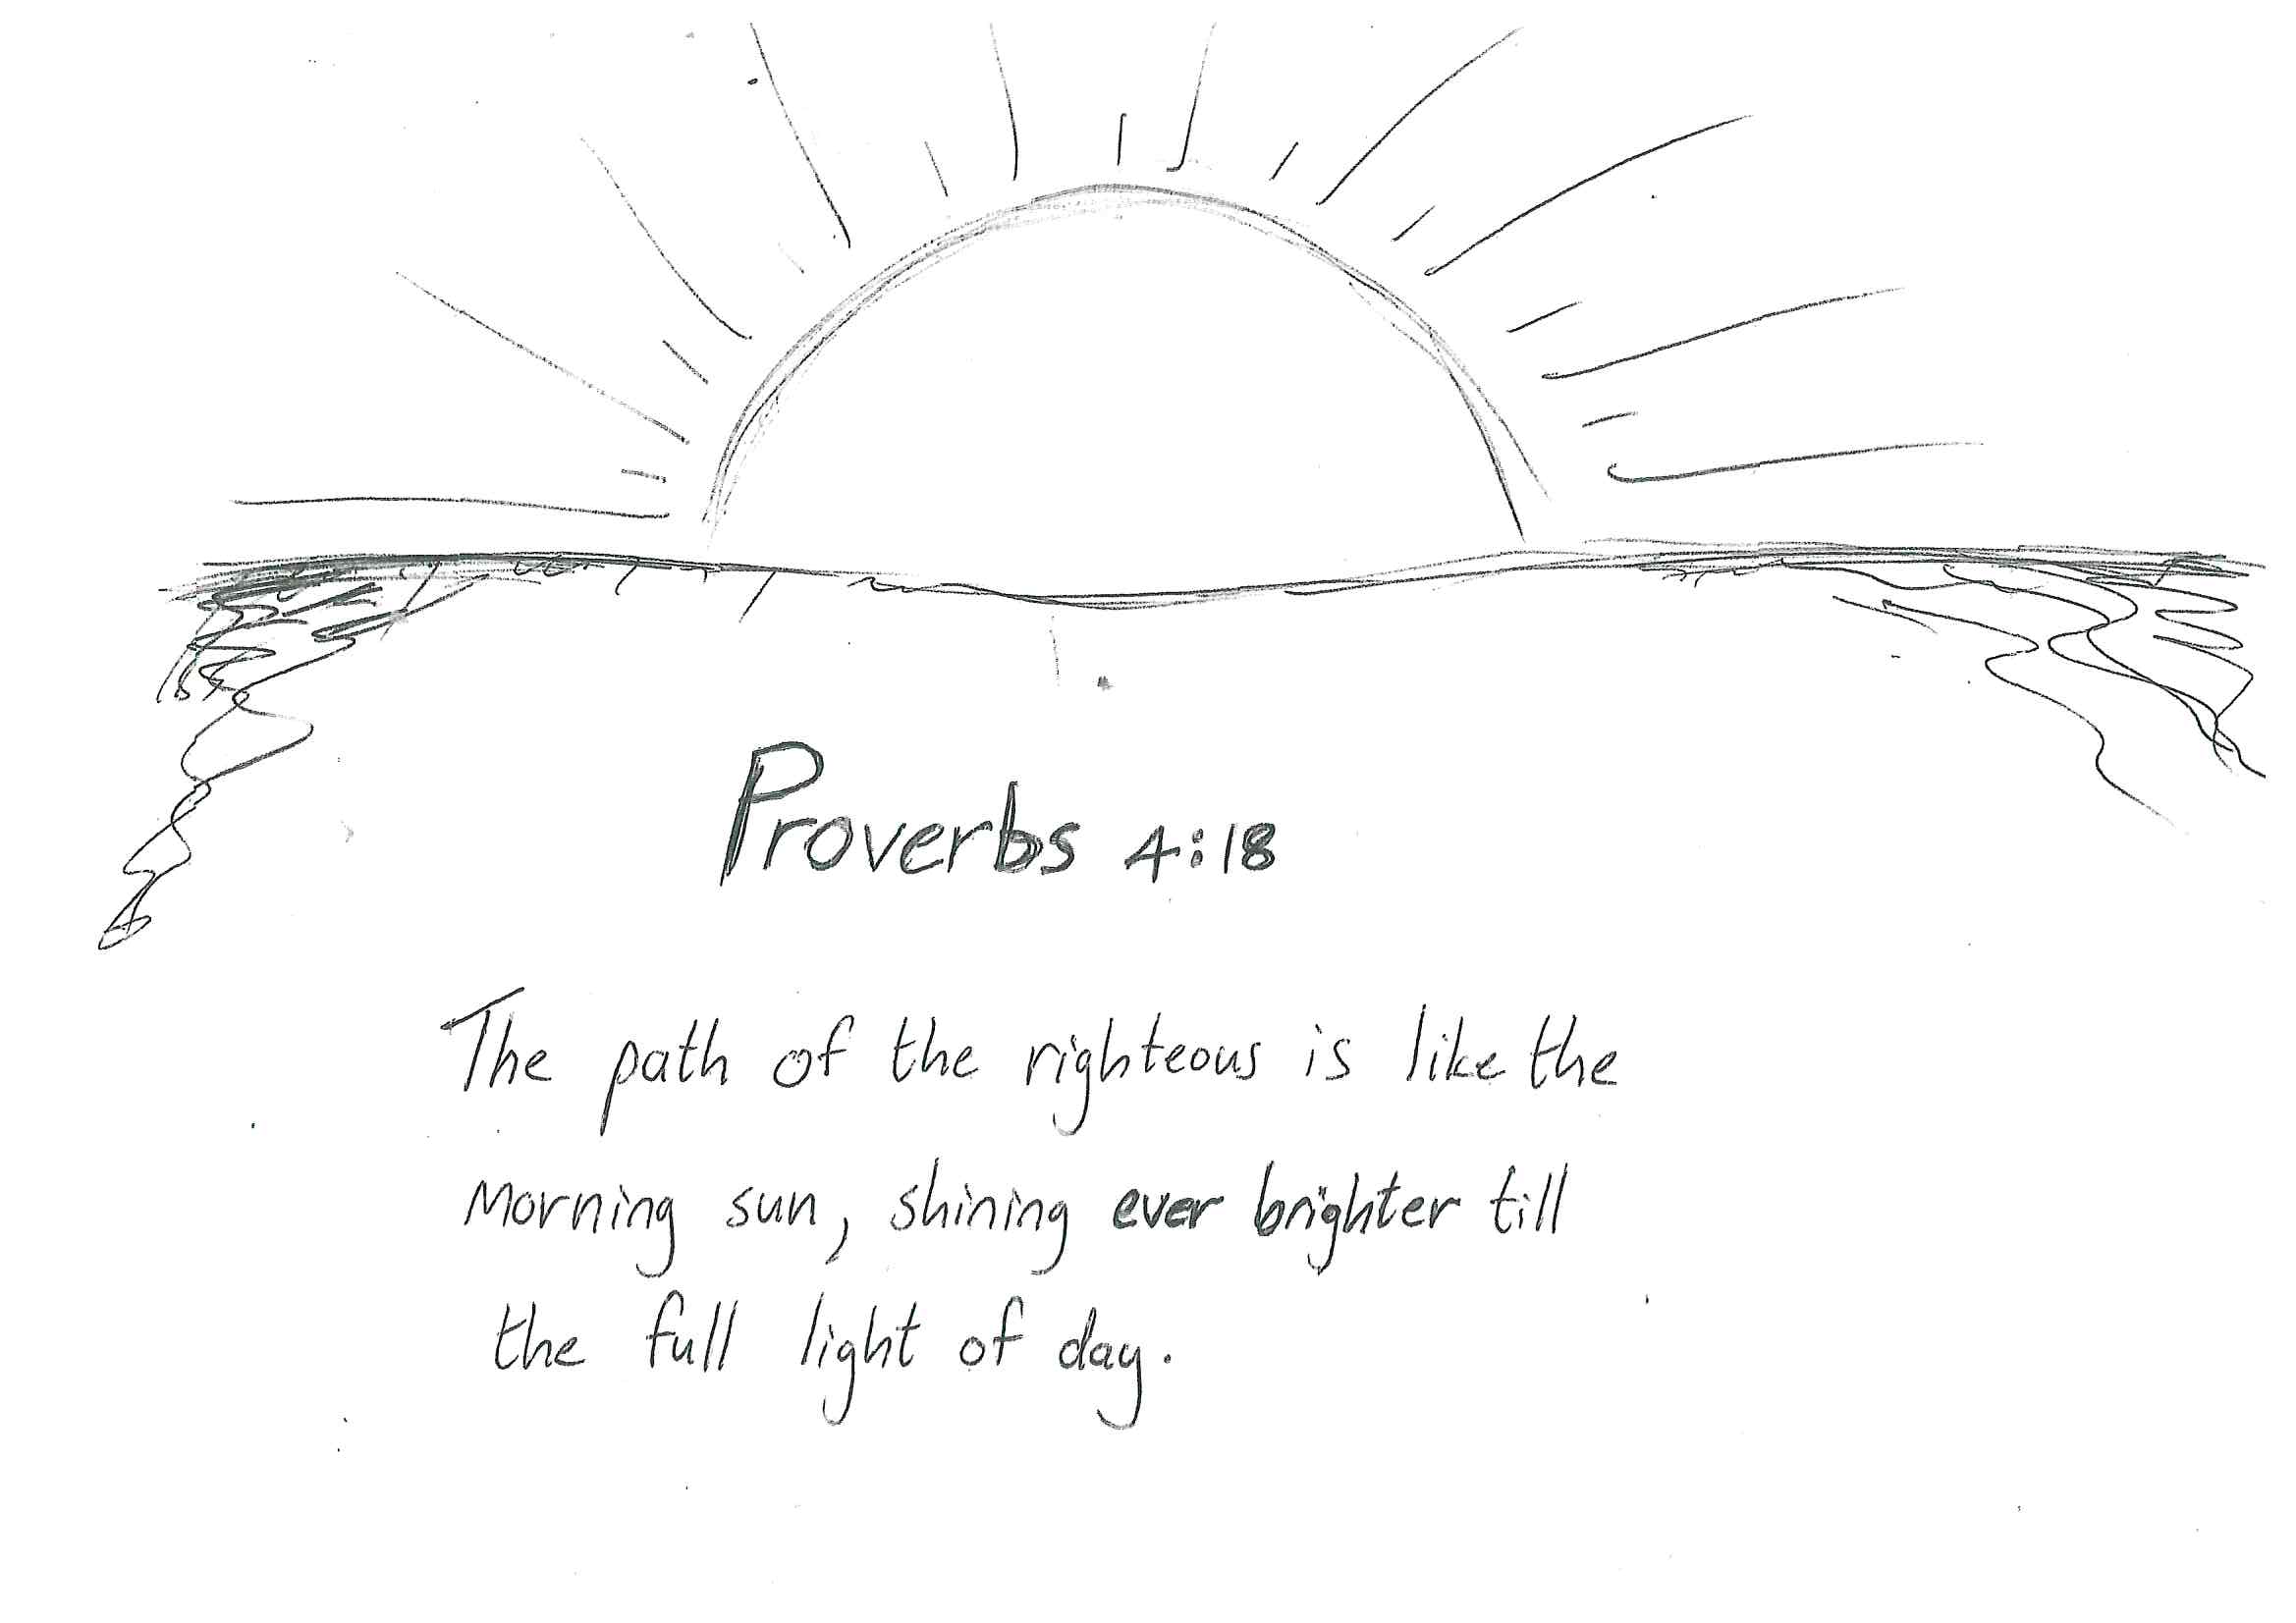 Proverbs 4:18
The path of the righteous is like the
morning sun, shining ever brighter till
the full light of day.